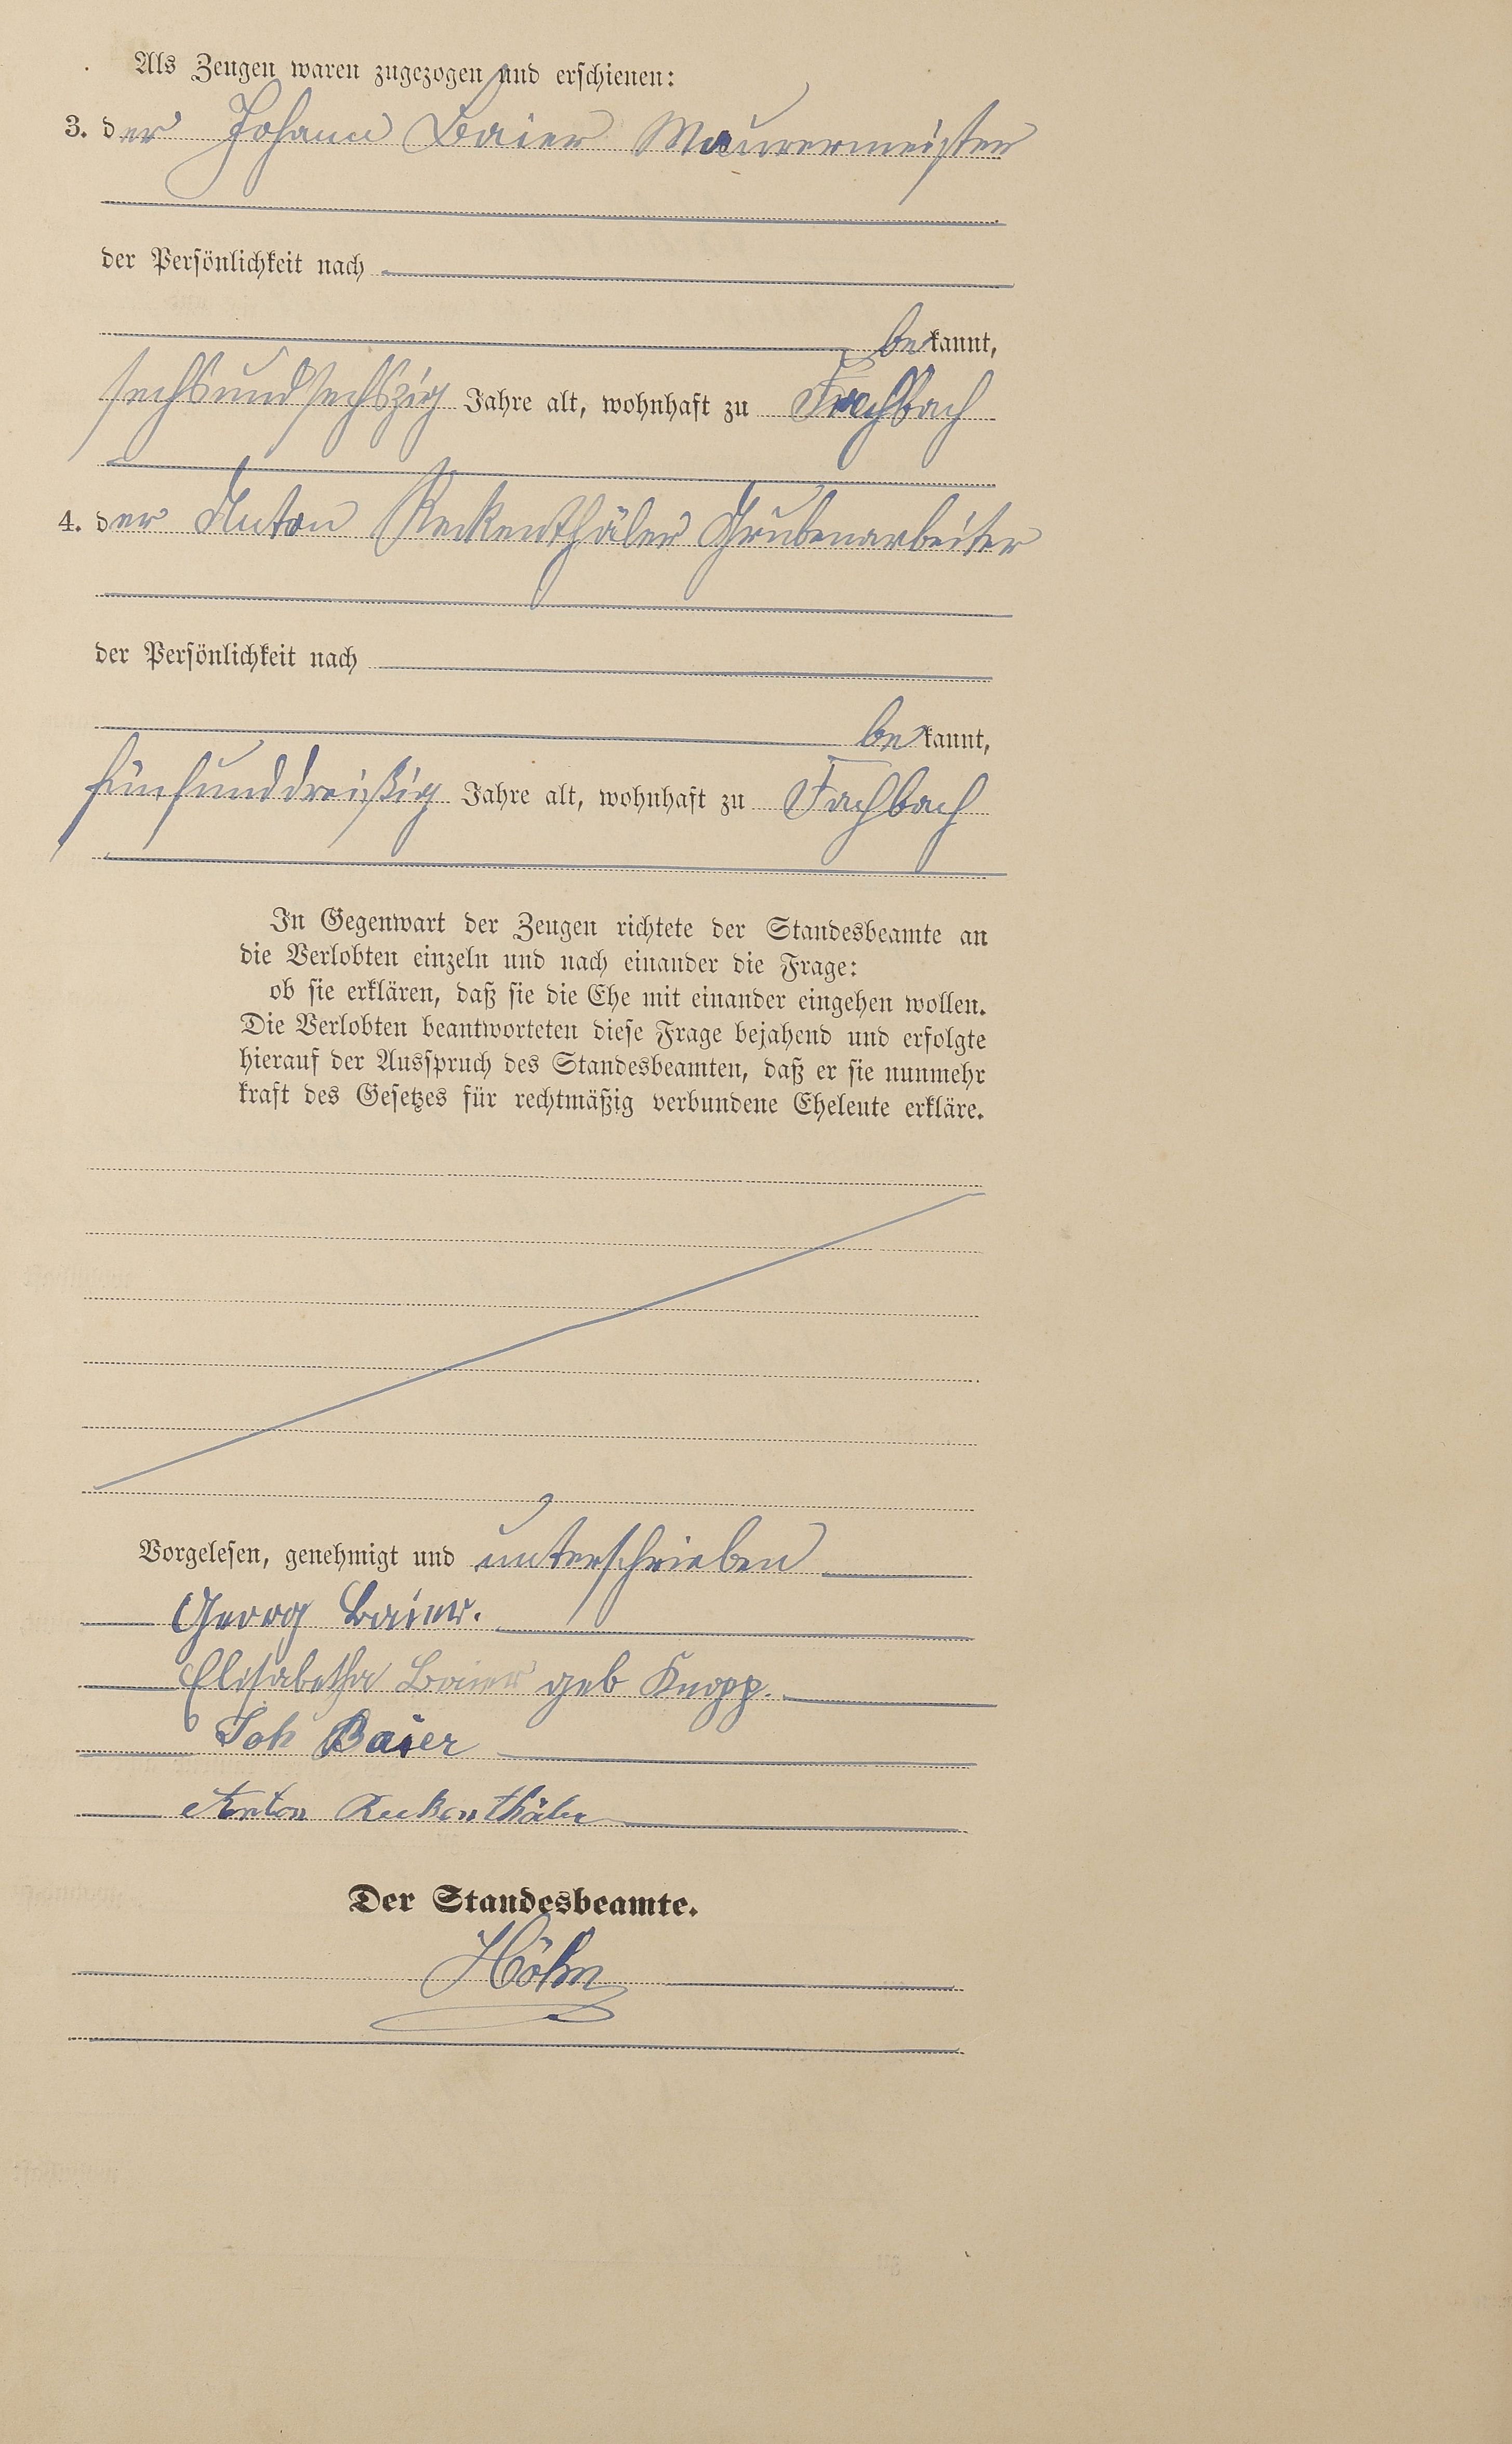 Als Zeugen waren zugezogen und erschienen:
3. der Johann Baier Maurermeister
der Persönlichkeit nach
bekannt,
sechsundsechszig Jahre alt, wohnhaft zu Fachbach
4. der Anton Reckenthäler Grubenarbeiter
der Persönlichkeit nach
bekannt,
fünfunddreißig Jahre alt, wohnhaft zu Fachbach
In Gegenwart der Zeugen richtete der Standesbeamte an
die Verlobten einzeln und nach einander die Frage:
ob sie erklären, daß sie die Ehe mit einander eingehen wollen.
Die Verlobten beantworteten diese Frage bejahend und erfolgte
hierauf der Ausspruch des Standesbeamten, daß er sie nunmehr
kraft des Gesetzes für rechtmäßig verbundene Eheleute erkläre.
Vorgelesen, genehmigt und unterschrieben
Georg Baier.
Elisabetha Baier geb Knopp.
Joh Baier
Anton Reckenthäler
Der Standesbeamte.
Höhn